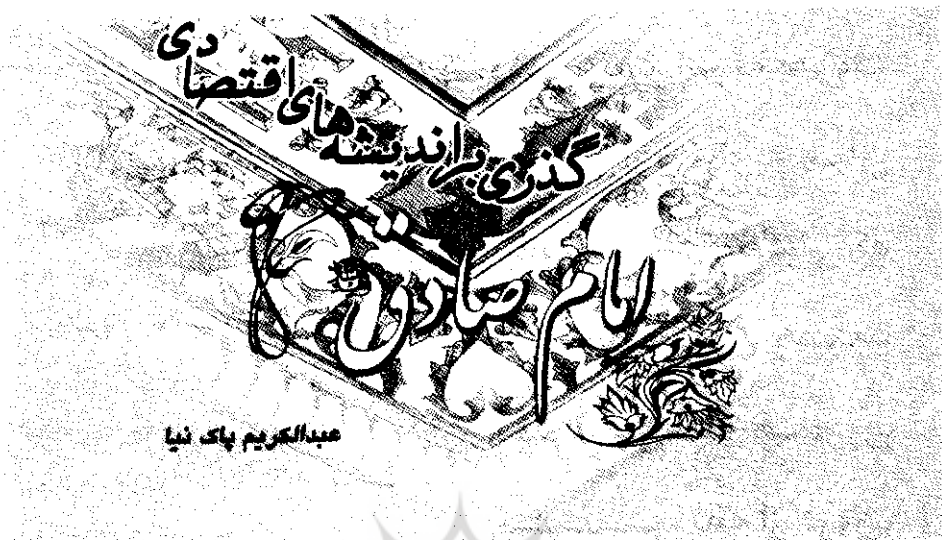 گذری بر اندیشه‌های اقتصادی
امام صادق
عبدالکریم پاک نیا